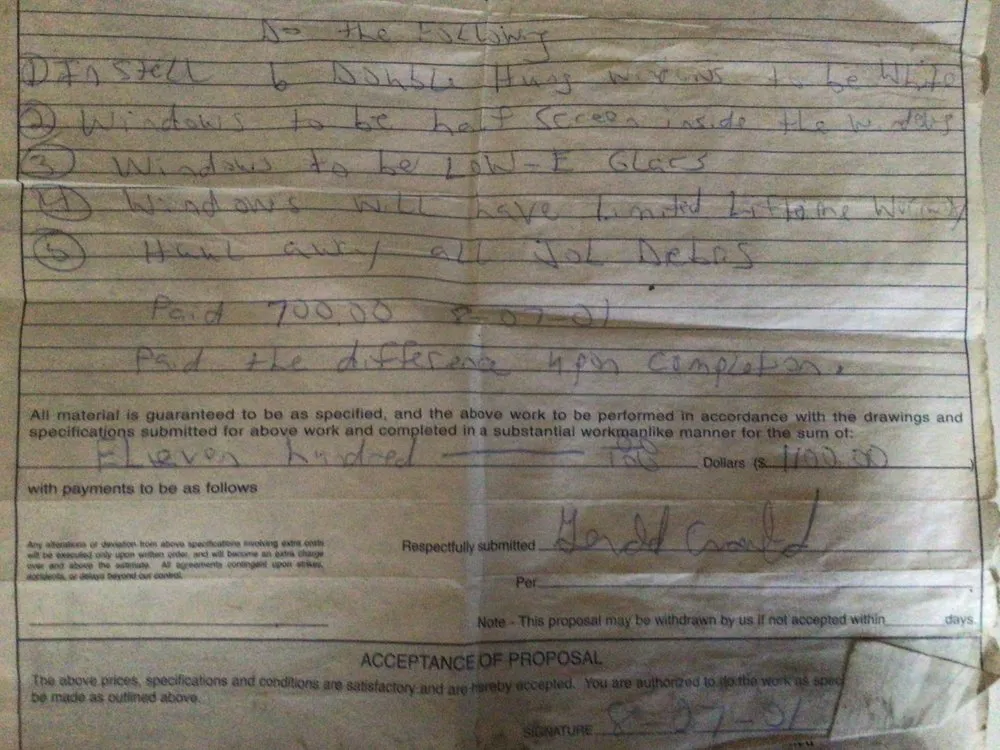 Do the Following
① Install 6 Double Hung to be White
② Windows to be half Screen inside the windows
③ Windows to be Low-E Glass
④ Windows will have Limited Liftime
⑤ Haul away all Job Debris
Paid 700.00 8-07-01
Paid the difference upon completion.
All material is guaranteed to be as specified, and the above work to be performed in accordance with the drawings and
specifications submitted for above work and completed in a substantial workmanlike manner for the sum of:
Eleven hundred 00/100 Dollars ($ 1100.00 )
with payments to be as follows
Any alterations or deviation from above specifications involving extra costs
will be executed only upon written order, and will become an extra charge
over and above the estimate. All agreements contingent upon strikes,
accidents, or delays beyond our control.
Respectfully submitted
Per
Note - This proposal may be withdrawn by us if not accepted within days.
ACCEPTANCE OF PROPOSAL
The above prices, specifications and conditions are satisfactory and are hereby accepted. You are authorized to do the work as spec
be made as outlined above.
SIGNATURE 8-07-01